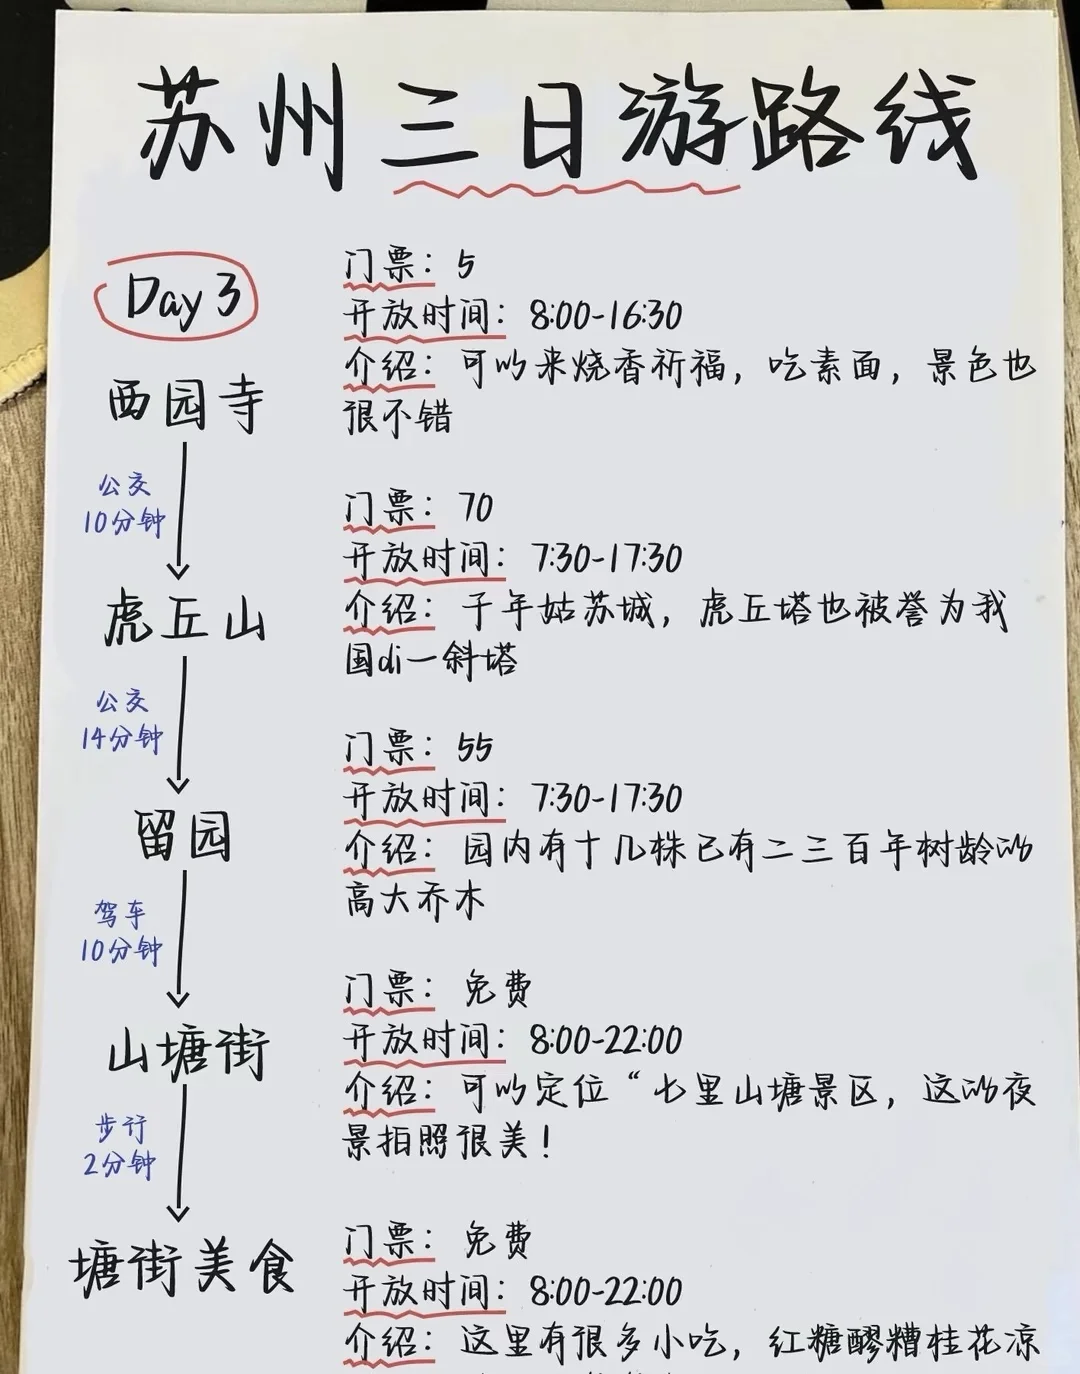 苏州三日游路线
Day 3
西园寺
门票：5
开放时间：8:00-16:30
介绍：可以来烧香祈福，吃素面，景色也
很不错
公交
10分钟
虎丘山
门票：70
开放时间：7:30-17:30
介绍：千年姑苏城，虎丘塔也被誉为我
国di一斜塔
公交
14分钟
留园
门票：55
开放时间：7:30-17:30
介绍：园内有十几株已有二三百年树龄的
高大乔木
驾车
10分钟
山塘街
门票：免费
开放时间：8:00-22:00
介绍：可以定位“七里山塘景区，这的夜
景拍照很美！
步行
2分钟
塘街美食
门票：免费
开放时间：8:00-22:00
介绍：这里有很多小吃，红糖醪糟桂花凉